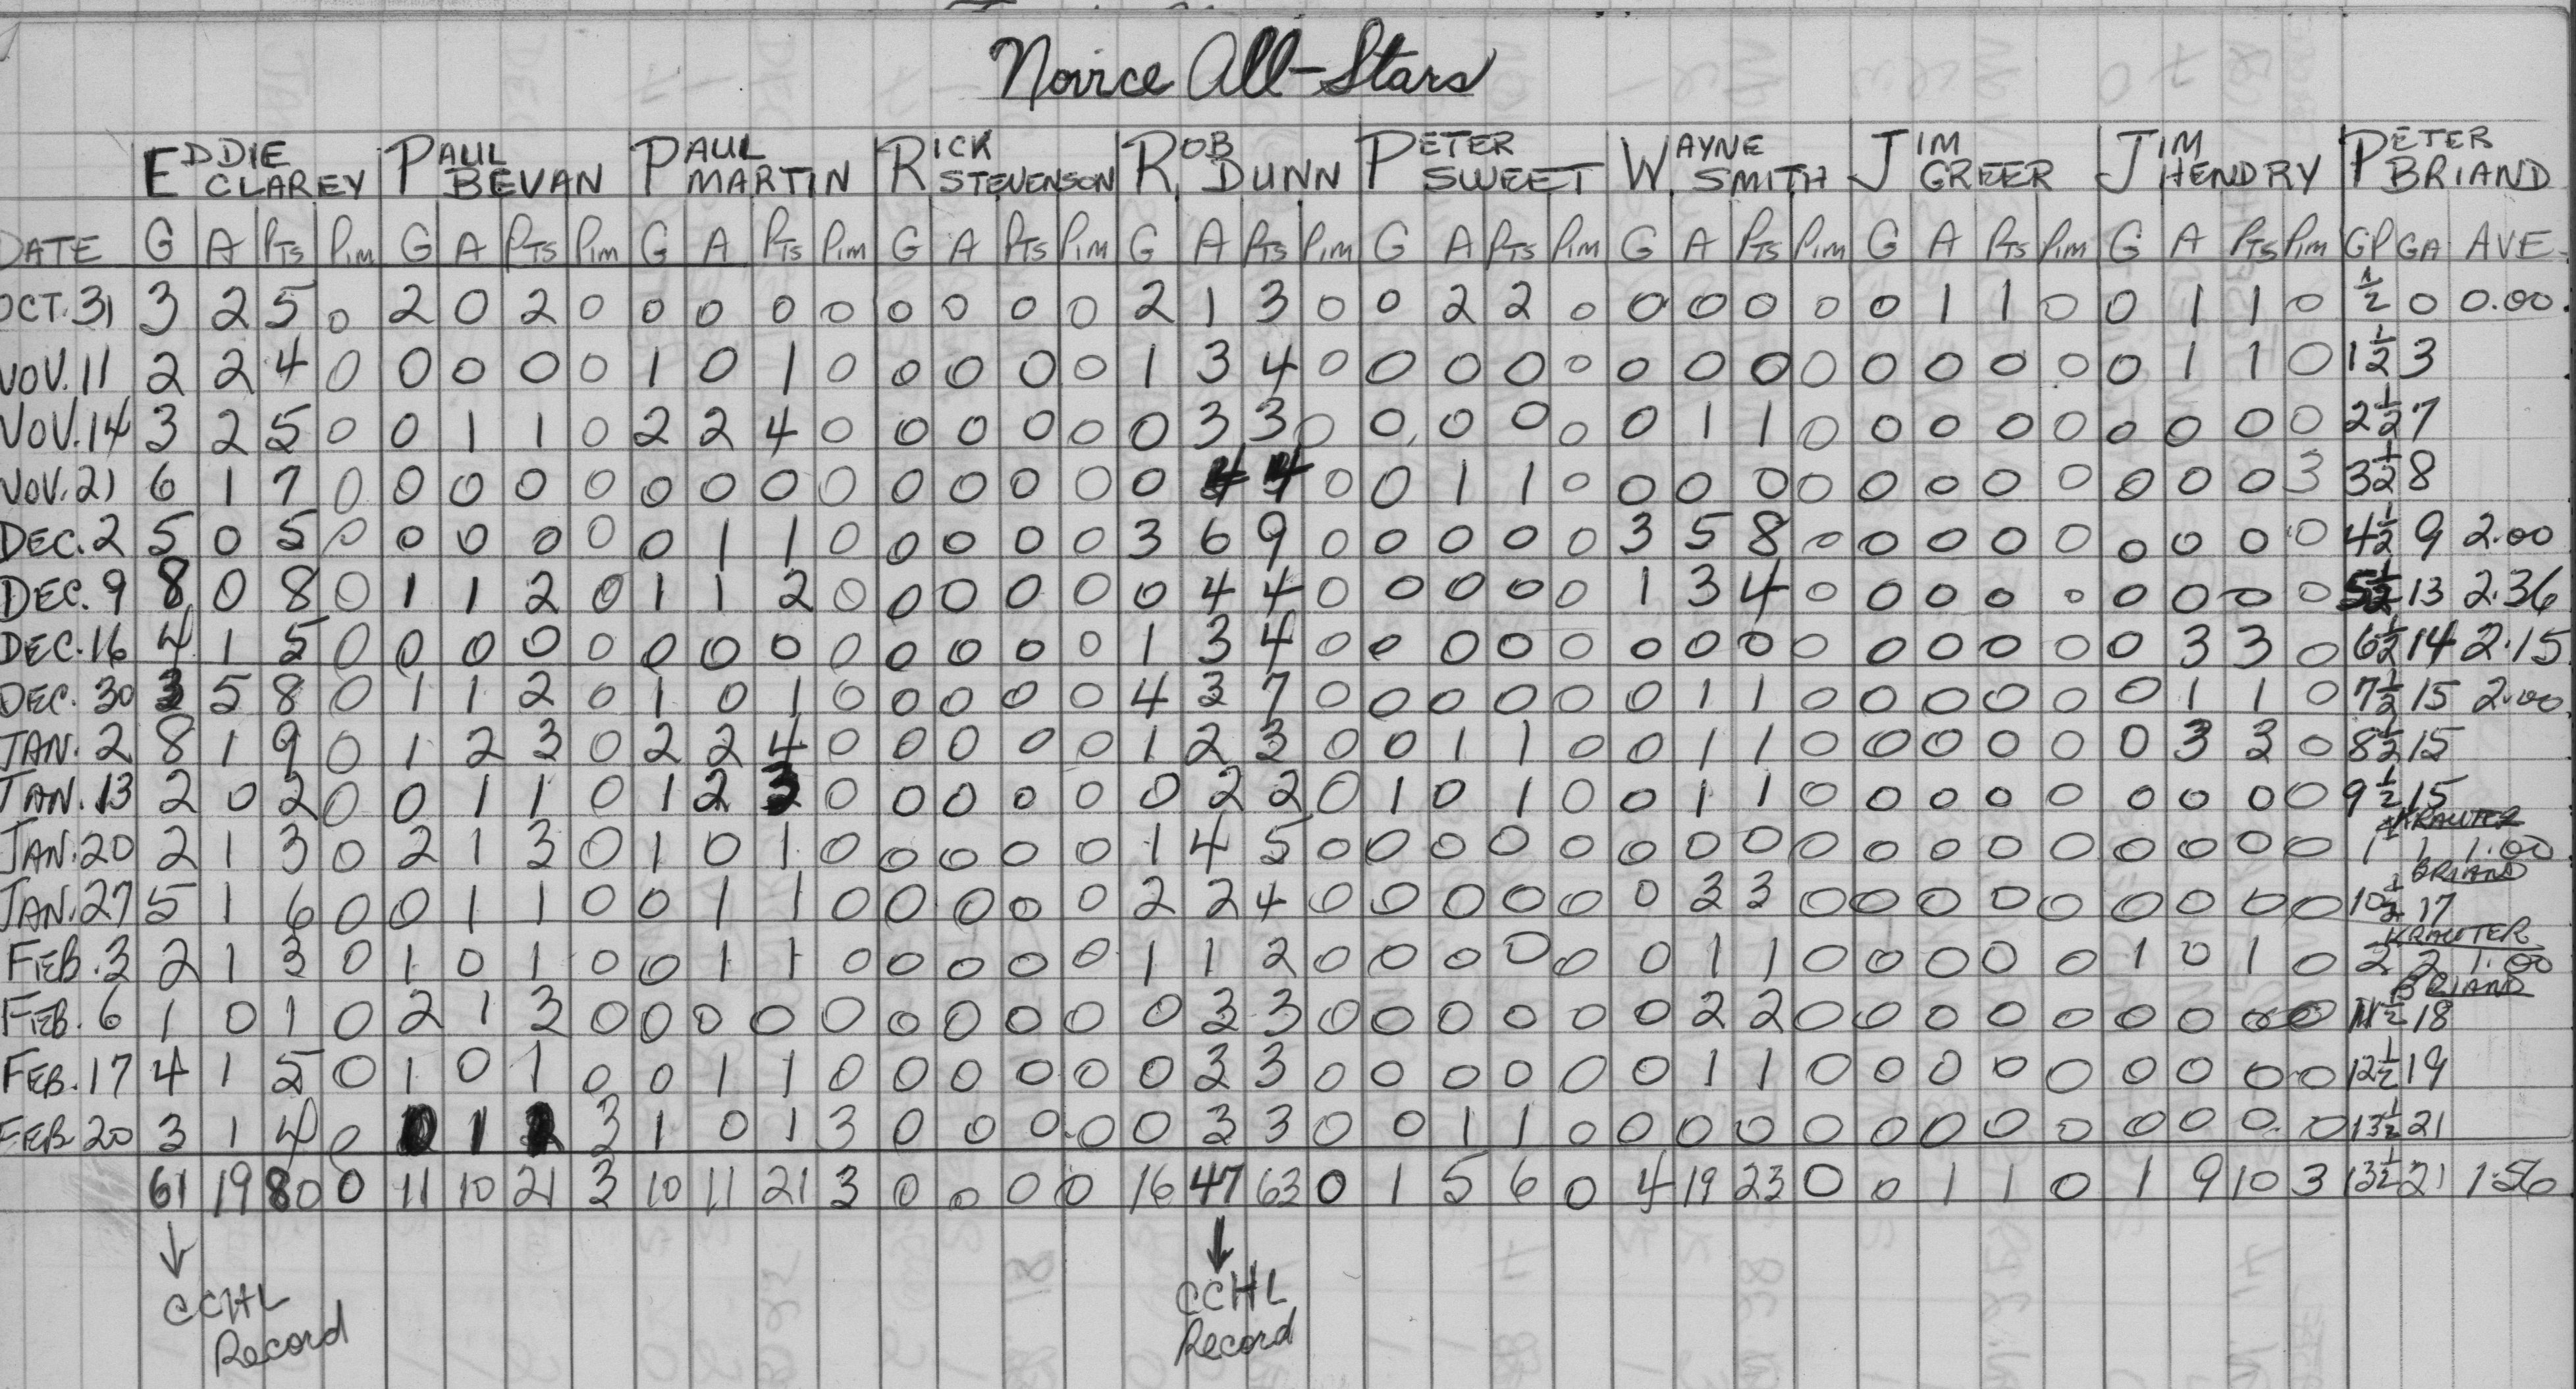 Novice All-Stars
EDDIE CLAREY PAUL BEVAN PAUL MARTIN RICK STEVENSON ROB DUNN PETER SWEET WAYNE SMITH JIM GREER JIM HENDRY PETER BRIAND
DATE G A PTS PIM G A PTS PIM G A PTS PIM G A PTS PIM G A PTS PIM G A PTS PIM G A PTS PIM G A PTS PIM G A PTS PIM GP GA AVE.
OCT. 31 3 2 5 0 2 0 2 0 0 0 0 0 0 0 0 0 2 1 3 0 0 2 2 0 0 0 0 0 0 1 1 0 0 1 1 0 1/2 0 0.00
NOV. 11 2 2 4 0 0 0 0 0 1 0 1 0 0 0 0 0 1 3 4 0 0 0 0 0 0 0 0 0 0 0 0 0 0 1 1 0 1 1/2 3
NOV. 14 3 2 5 0 0 1 1 0 2 2 4 0 0 0 0 0 0 3 3 0 0 0 0 0 0 1 1 0 0 0 0 0 0 0 0 0 2 1/2 7
NOV. 21 6 1 7 0 0 0 0 0 0 0 0 0 0 0 0 0 0 4 4 0 0 1 1 0 0 0 0 0 0 0 0 0 0 0 0 3 3 1/2 8
DEC. 2 5 0 5 0 0 0 0 0 0 1 1 0 0 0 0 0 3 6 9 0 0 0 0 0 3 5 8 0 0 0 0 0 0 0 0 0 4 1/2 9 2.00
DEC. 9 8 0 8 0 1 1 2 0 1 1 2 0 0 0 0 0 0 4 4 0 0 0 0 0 1 3 4 0 0 0 0 0 0 0 0 0 5 1/2 13 2.36
DEC. 16 4 1 5 0 0 0 0 0 0 0 0 0 0 0 0 0 1 3 4 0 0 0 0 0 0 0 0 0 0 0 0 0 0 3 3 0 6 1/2 14 2.15
DEC. 30 3 5 8 0 1 1 2 0 1 0 1 0 0 0 0 0 4 3 7 0 0 0 0 0 0 1 1 0 0 0 0 0 0 1 1 0 7 1/2 15 2.00
JAN. 2 8 1 9 0 1 2 3 0 2 2 4 0 0 0 0 0 1 2 3 0 0 1 1 0 0 1 1 0 0 0 0 0 0 3 3 0 8 1/2 15
JAN. 13 2 0 2 0 0 1 1 0 1 2 3 0 0 0 0 0 0 2 2 0 1 0 1 0 0 1 1 0 0 0 0 0 0 0 0 0 9 1/2 15
KRAUTER
JAN. 20 2 1 3 0 2 1 3 0 1 0 1 0 0 0 0 0 1 4 5 0 0 0 0 0 0 0 0 0 0 0 0 0 0 0 0 0 1 1 1.00
BRIAND
JAN. 27 5 1 6 0 0 1 1 0 0 1 1 0 0 0 0 0 2 2 4 0 0 0 0 0 0 3 3 0 0 0 0 0 0 0 0 0 10 1/2 17
KRAUTER
FEB. 3 2 1 3 0 1 0 1 0 0 1 1 0 0 0 0 0 1 1 2 0 0 0 0 0 0 1 1 0 0 0 0 0 1 0 1 0 2 2 1.00
BRIAND
FEB. 6 1 0 1 0 2 1 3 0 0 0 0 0 0 0 0 0 0 3 3 0 0 0 0 0 0 2 2 0 0 0 0 0 0 0 0 0 11 1/2 18
FEB. 17 4 1 5 0 1 0 1 0 0 1 1 0 0 0 0 0 0 3 3 0 0 0 0 0 0 1 1 0 0 0 0 0 0 0 0 0 12 1/2 19
FEB. 20 3 1 4 0 0 1 3 1 0 1 3 0 0 0 0 0 3 3 0 0 1 1 0 0 0 0 0 0 0 0 0 0 0 0 0 13 1/2 21
61 19 80 0 11 10 21 3 10 11 21 3 0 0 0 0 16 47 63 0 1 5 6 0 4 19 23 0 0 1 1 0 1 9 10 3 13 1/2 21 1.56
↓ ↓
CCHL CCHL
Record Record